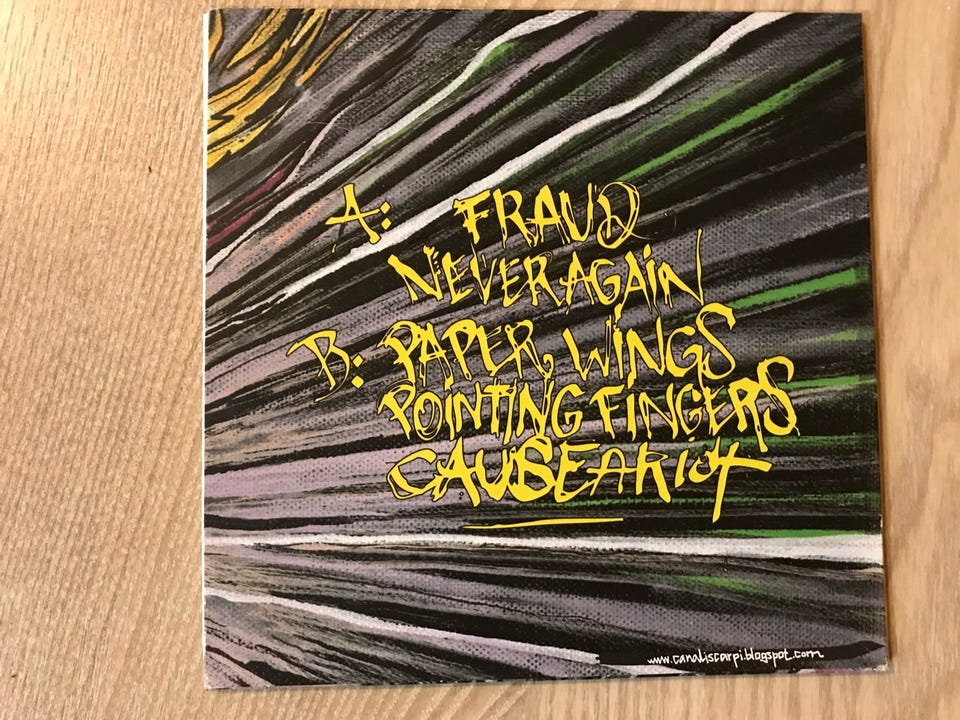 A: FRAUD
NEVER AGAIN
B: PAPER WINGS
POINTING FINGERS
CAUSE A RiOt
www.canaliscarpi.blogspot.com